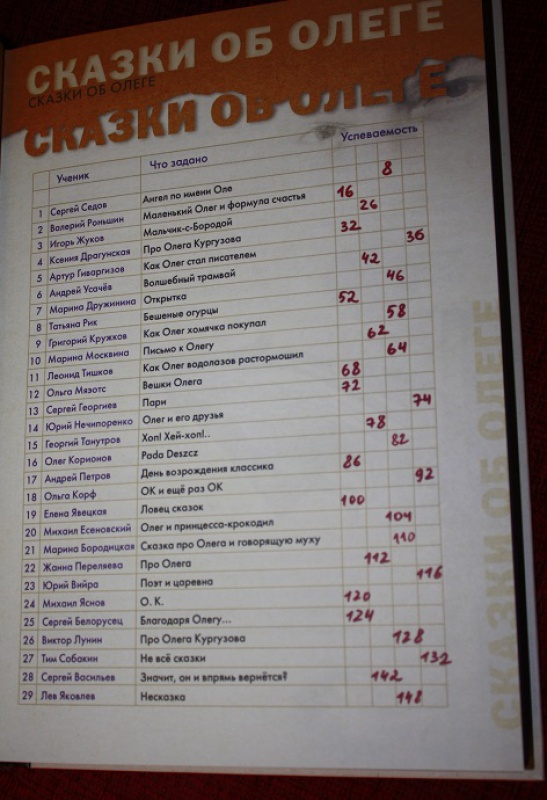 СКАЗКИ ОБ ОЛЕГЕ
СКАЗКИ ОБ ОЛЕГЕ
СКАЗКИ ОБ ОЛЕГЕ
Ученик Что задано Успеваемость
1 Сергей Седов Ангел по имени Оле 8
2 Валерий Роньшин Маленький Олег и формула счастья 16
3 Игорь Жуков Мальчик-с-Бородой 26
4 Ксения Драгунская Про Олега Кургузова 32
5 Артур Гиваргизов Как Олег стал писателем 36
6 Андрей Усачёв Волшебный трамвай 42
7 Марина Дружинина Открытка 46
8 Татьяна Рик Бешеные огурцы 52
9 Григорий Кружков Как Олег хомячка покупал 58
10 Марина Москвина Письмо к Олегу 62
11 Леонид Тишков Как Олег водолазов растормошил 64
12 Ольга Мяэотс Вешки Олега 68
13 Сергей Георгиев Пари 72
14 Юрий Нечипоренко Олег и его друзья 74
15 Георгий Танутров Хоп! Хей-хоп!.. 78
16 Олег Корионов Pada Deszcz 82
17 Андрей Петров День возрождения классика 86
18 Ольга Корф ОК и ещё раз ОК 92
19 Елена Явецкая Ловец сказок 100
20 Михаил Есеновский Олег и принцесса-крокодил 104
21 Марина Бородицкая Сказка про Олега и говорящую муху 110
22 Жанна Переляева Про Олега 112
23 Юрий Вийра Поэт и царевна 116
24 Михаил Яснов О. К. 120
25 Сергей Белорусец Благодаря Олегу... 124
26 Виктор Лунин Про Олега Кургузова 128
27 Тим Собакин Не всё сказки 132
28 Сергей Васильев Значит, он и впрямь вернётся? 142
29 Лев Яковлев Несказка 148
СКАЗКИ ОБ ОЛЕГЕ